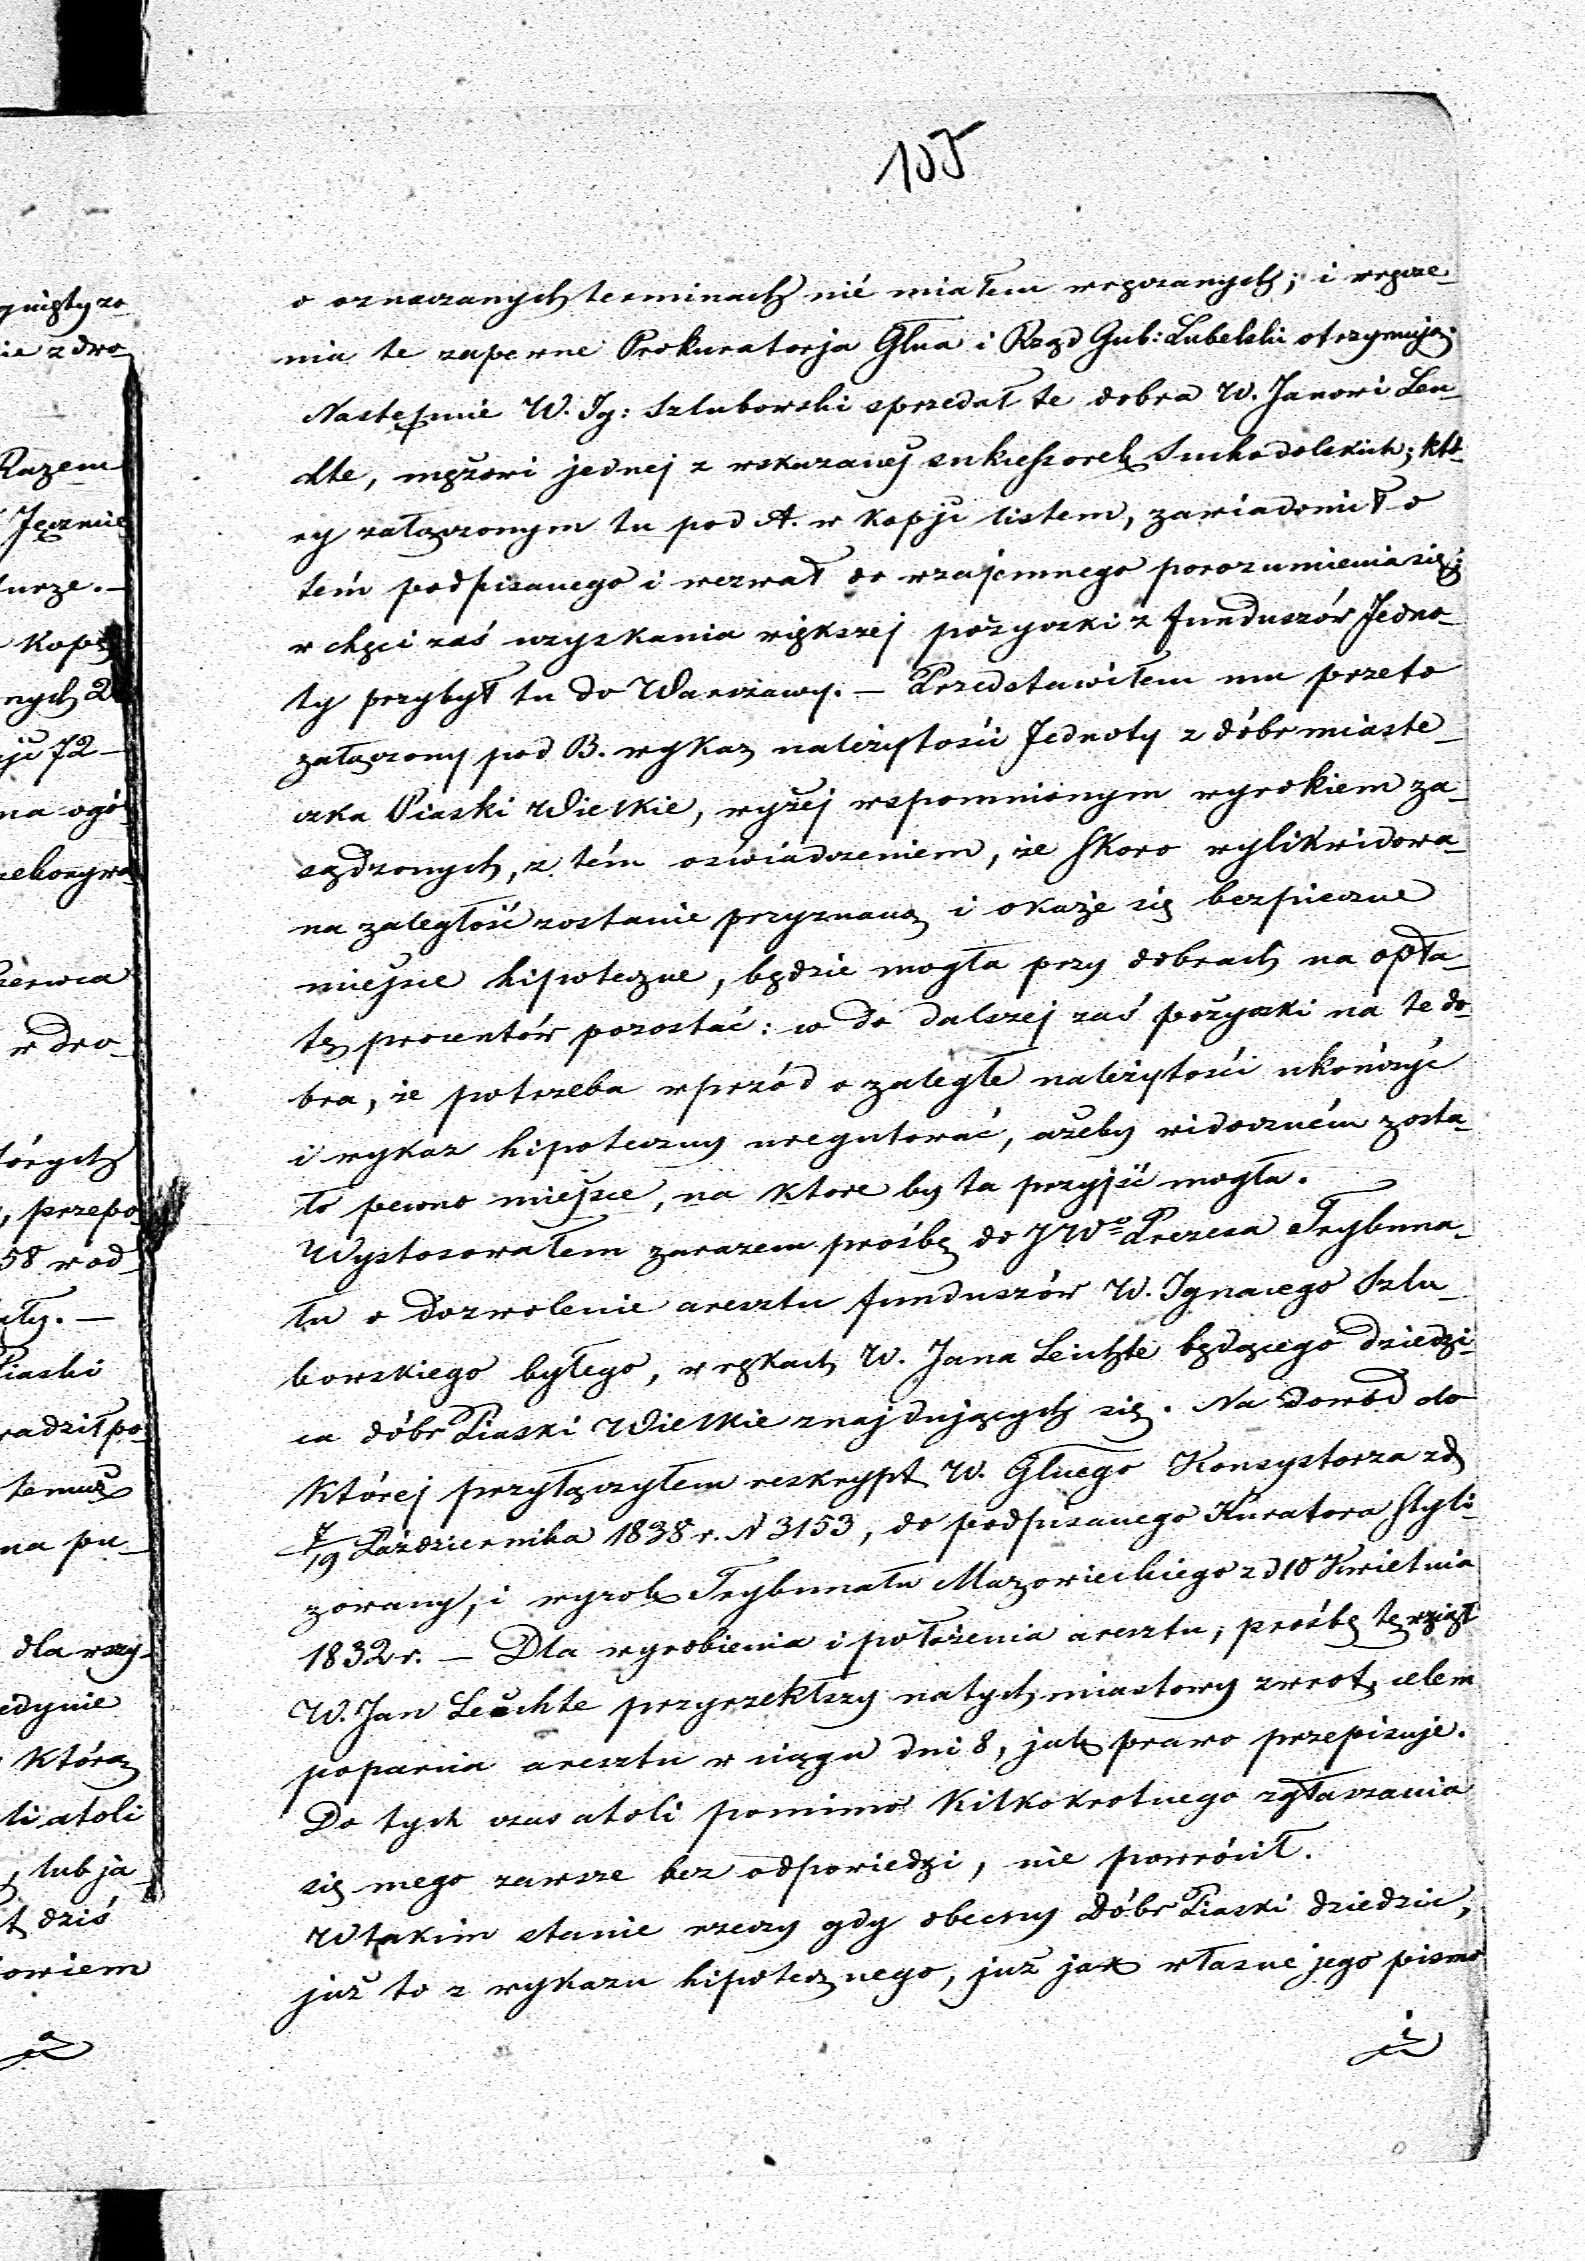 105
o oznaczanych terminach nié miałem wręczanych; i wręcze-
nia te zapewne Prokuratorja Głna i Rząd Gub: Lubelski otrzymują.
Następnie W. Ig: Szluborski sprzedał te dobra W. Janowi Leu-
chte, mężowi jednej z wskazanéj sukcessorek Suchodolskich; któ-
ry załączonym tu pod A. w kopji listem, zawiadomił o
tém podpisanego i wezwał do wzajemnego porozumienia się;
w chęci zaś uzyskania większej pożyczki z funduszów Jedno-
ty przybył tu do Warszawy. — Przedstawiłem mu przeto
załączony pod B. wykaz należytości Jednoty z dóbr miaste-
czka Piaski Wielkie, wyżéj wspomnionym wyrokiem za-
sądzonych, z tém oświadczeniem, że skoro wylikwidowa-
na zaległość zostanie przyznaną i okaże się bezpieczne
miejsce hipoteczne, będzie mogła przy dobrach na opła-
tę procentów pozostać: co do dalszej zaś pożyczki na te do-
bra, że potrzeba wprzód o zaległe należytości ukończyć
i wykaz hipoteczny uregulować, ażeby widoczném zosta-
ło pewno miejsce, na które by ta przyjść mogła.
Wystosowałem zarazem prośbę do JWo Prezesa Trybuna-
łu o dozwolenie aresztu funduszów W. Ignacego Szlu-
borskiego byłego, w rękach W. Jana Leichte będącego dziedzi-
ca dóbr Piaski Wielkie znajdujących się. Na dowód do
której przyłączyłem reskrypt W. Głnego Konsystorza z d
7/19 Października 1838 r. N 3153, do podpisanego Kuratora styli-
zowany, i wyrok Trybunału Mazowieckiego z d 10 Kwietnia
1832 r. — Dla wyrobienia i położenia aresztu, prośbę tę wziął
W. Jan Leuchte przyrzekłszy natychmiastowy zwrot, celem
poparcia aresztu w ciągu dni 8, jak prawo przepisuje.
Do tych czas atoli pomimo kilkokrotnego zgłaszania
się mego zawsze bez odpowiedzi, nie powrócił.
W takim stanie rzeczy gdy obecny dóbr Piaski dziedzic,
już to z wykazu hipotecznego, już jak własne jego pismo
i